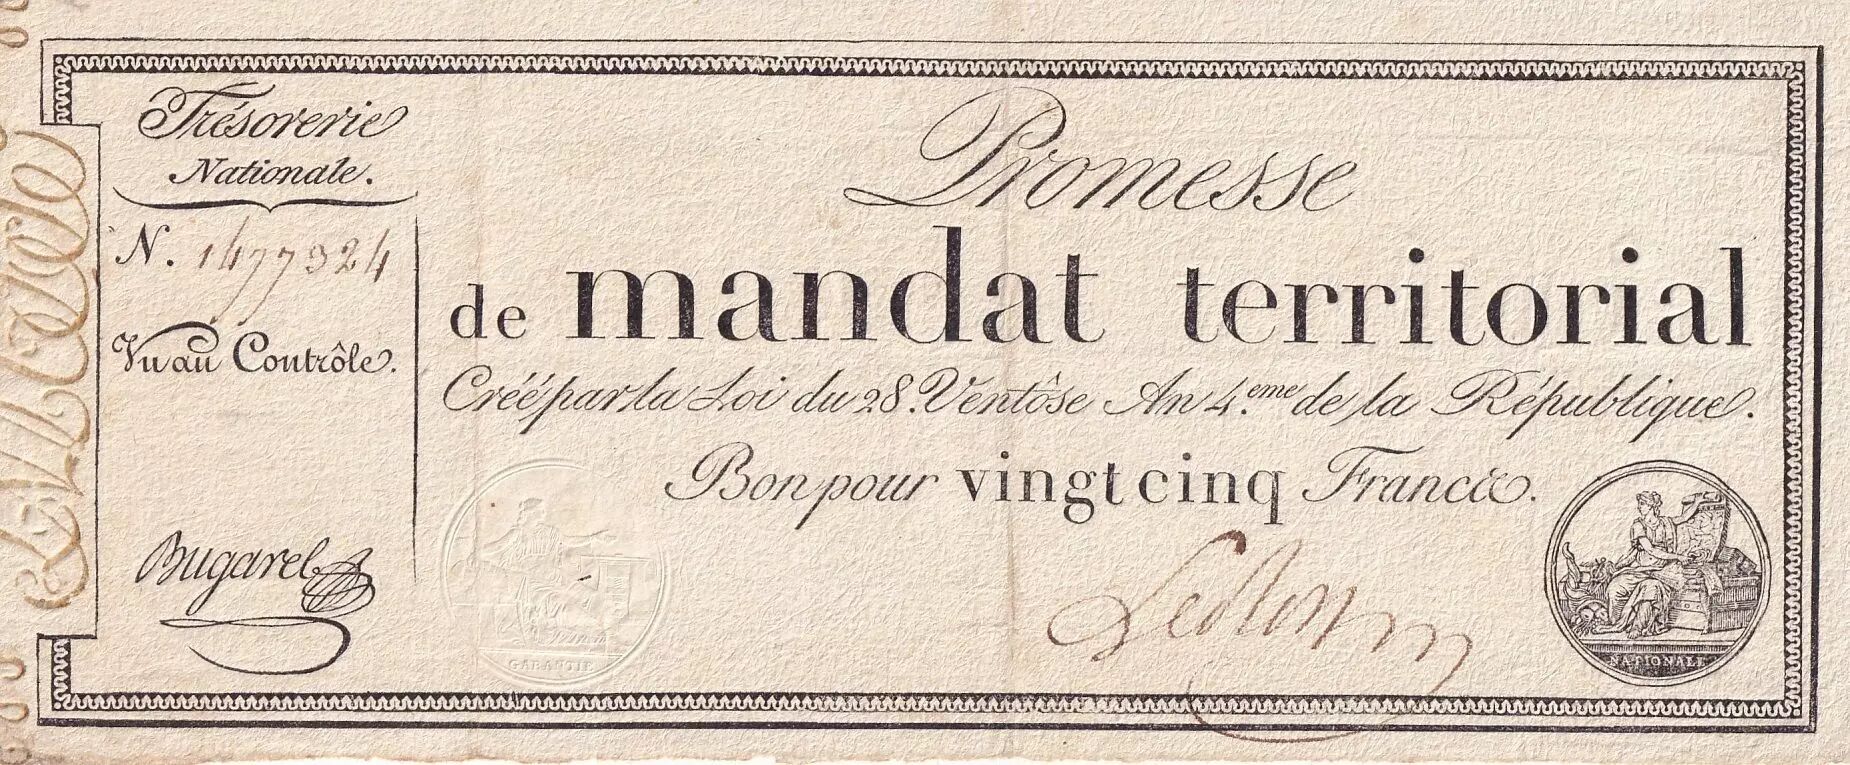 Trésorerie
Nationale.
N. 1477924
Vu au Contrôle.
Bugarel
Promesse
de mandat territorial
Créé par la Loi du 28. Ventôse An 4.eme de la République.
Bon pour vingt cinq Francs.
GARANTIE
NATIONALE